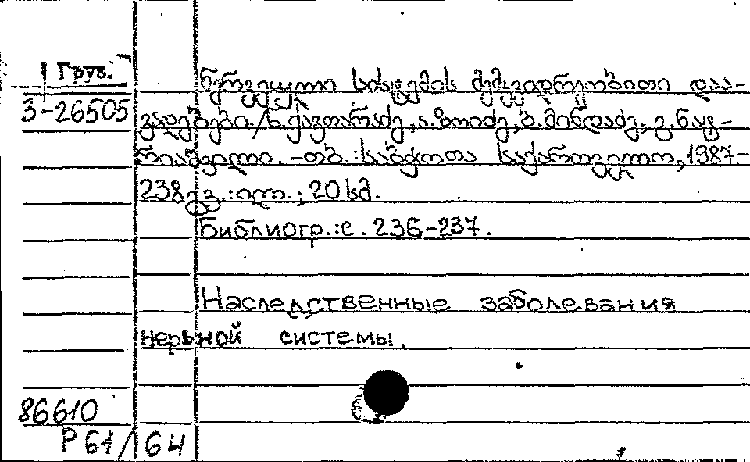 Груз.
3-26505
ნერვიული სისტემის მემკვიდრეობითი დაა-
ვადებები./ნ.ქავთარაძე,ა.ზოიძე,ბ.მინდაძე,
-თბ.:საბჭოთა საქართველო,1987-
238გვ.:ილ.;20სმ.
Библиогр.:с.236-237.
Наследственные заболевания
нервной системы.
86610
Р61/64